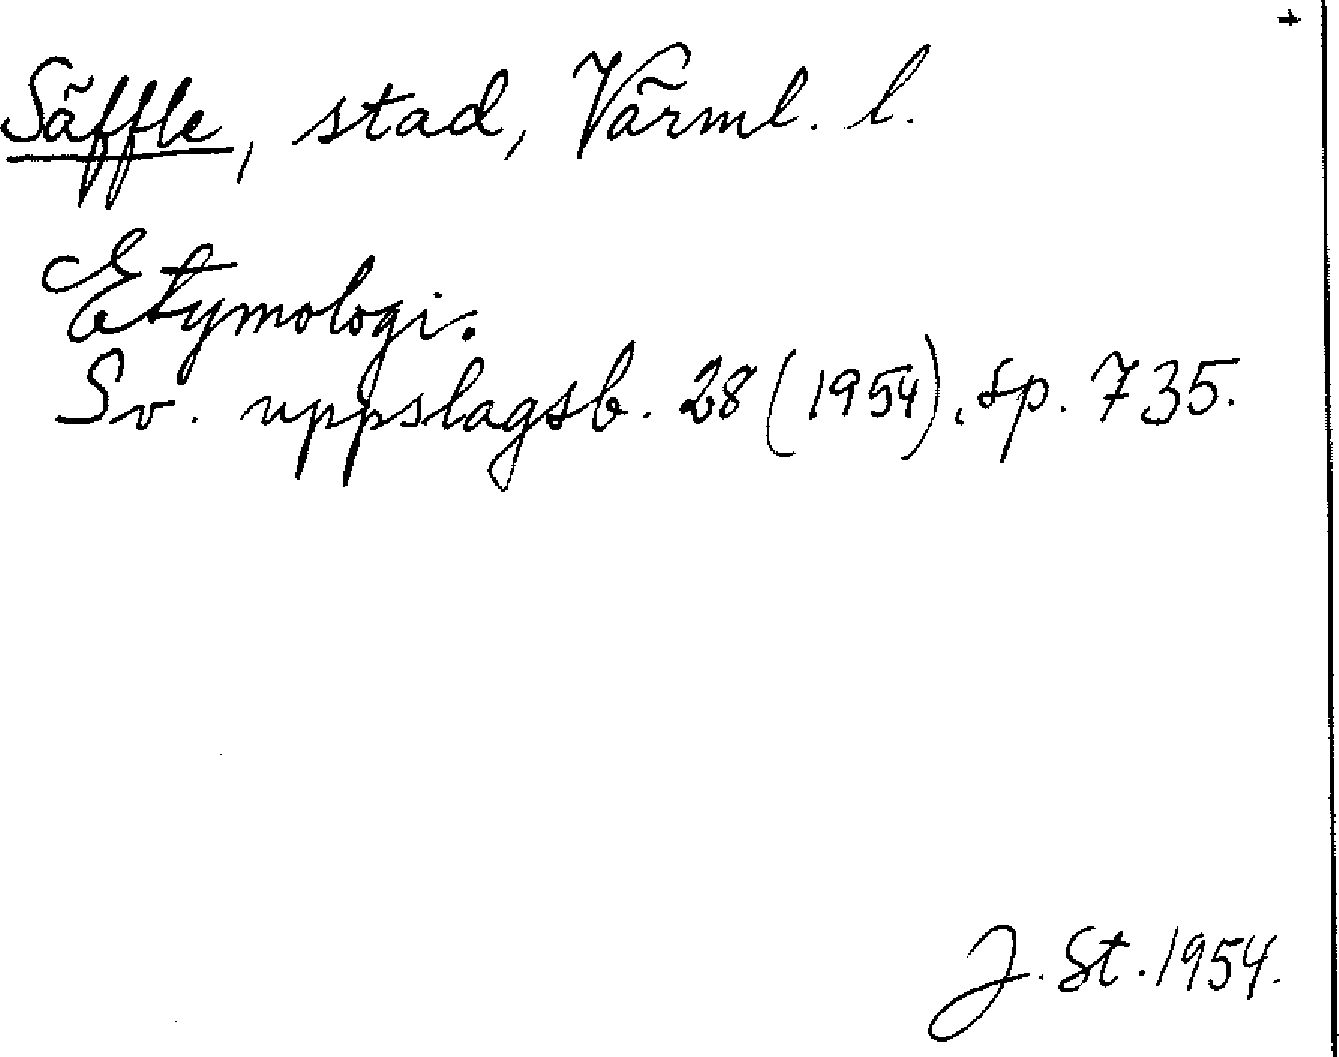 +
Säffle, stad, Värml. l.
Etymologi.
Sv. uppslagsb. 28 (1954), sp. 735.
J. St. 1954.